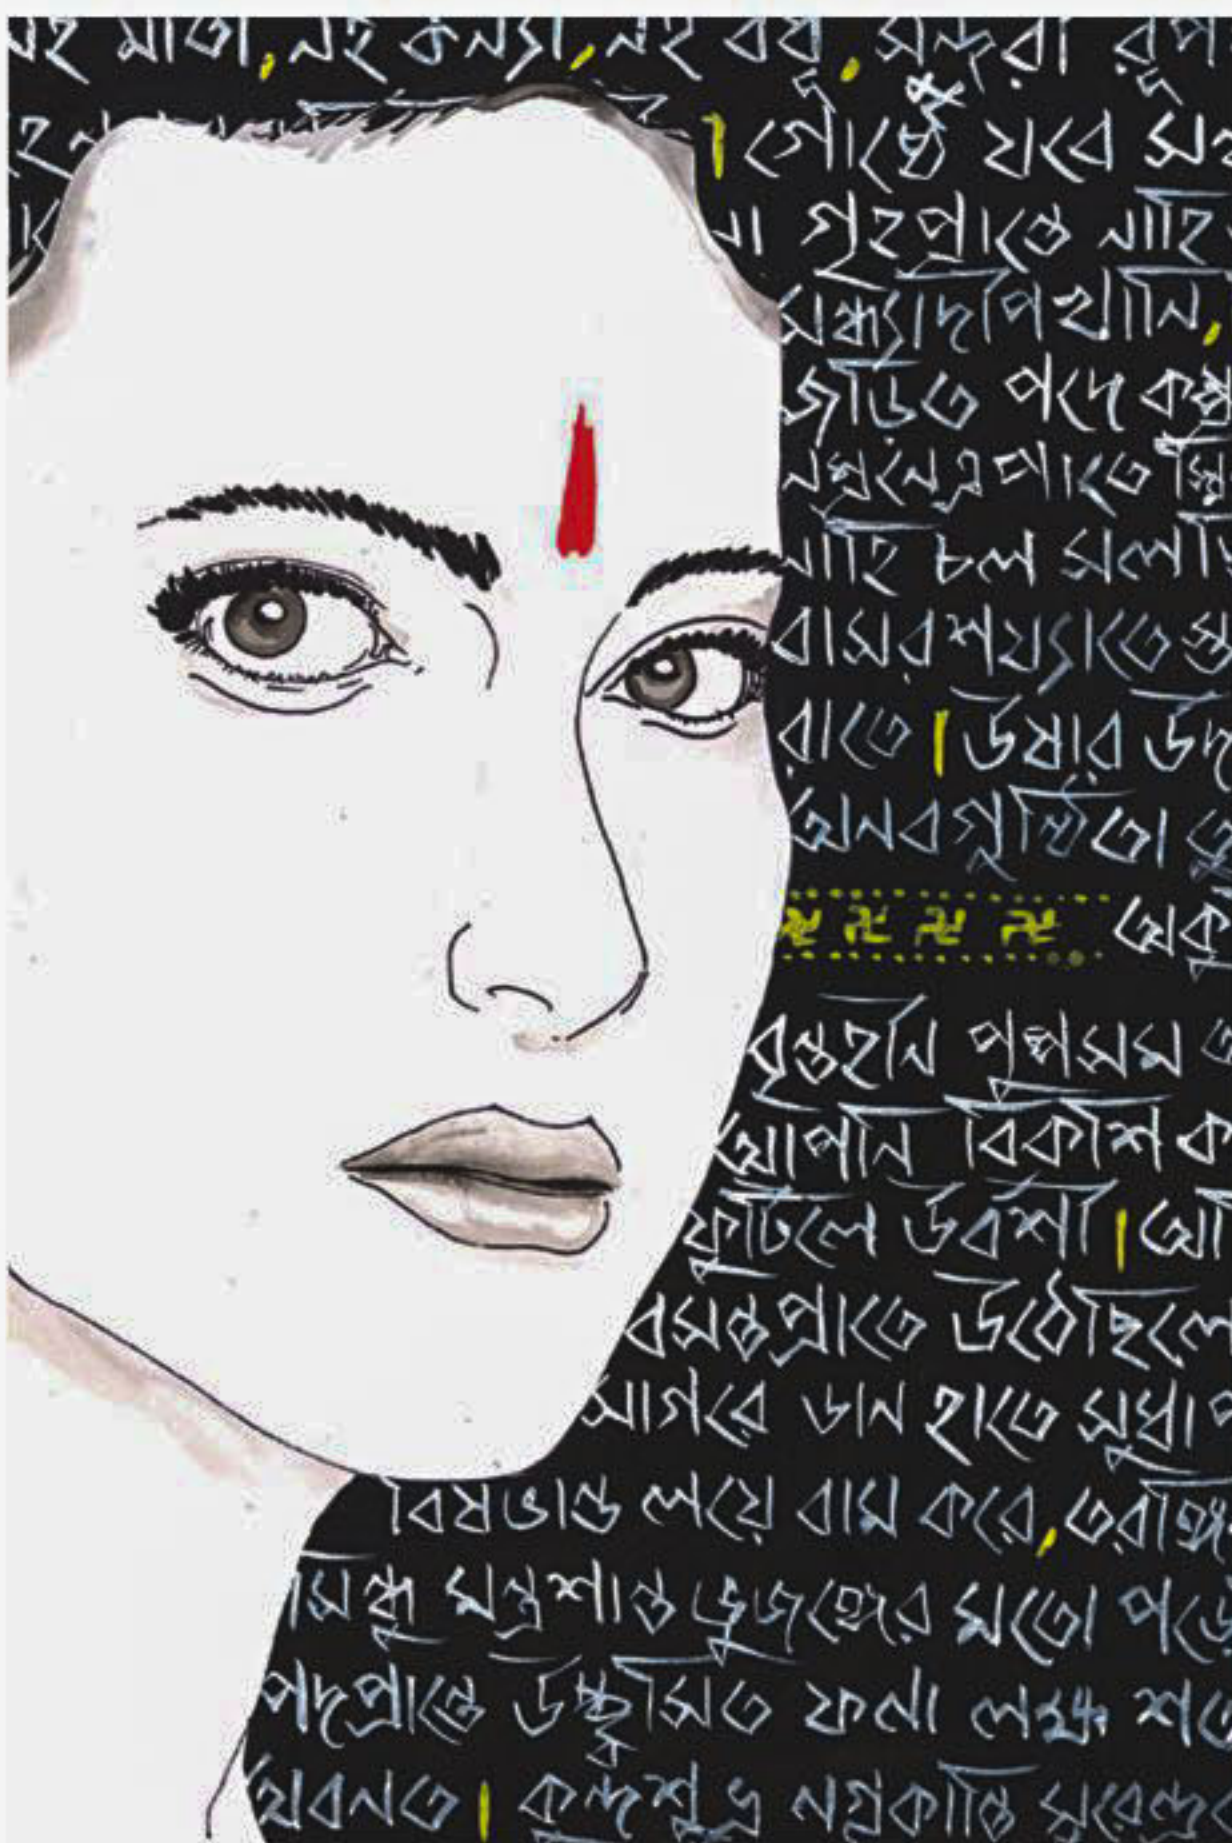 নহ মাতা, নহ কন্যা, নহ বধূ, সুন্দরী রূপ
। গোষ্ঠে যবে সন্ধ
গৃহপ্রান্তে নাহি
সন্ধ্যাদীপখানি,
জড়িত পদে কম্প্র
নম্রনেত্রপাতে স্মি
নাহি চল সলজ্জি
বাসরশয্যাতে স্ত
রাতে । উষার উদ
অনবগুণ্ঠিতা
বৃন্তহীন পুষ্পসম
আপনি বিকশি ক
ফুটিলে উর্বশী । আ
বসন্তপ্রাতে উঠেছিলে
সাগরে ডান হাতে সুধাপ
বিষভান্ড লয়ে বাম করে, তরঙ্গি
সিন্ধু মন্ত্রশান্ত ভুজঙ্গের মতো পড়ে
পদপ্রান্তে উচ্ছ্বসিত ফনা লক্ষ শত
অবনত । কুন্দশুভ্র নগ্নকান্তি সুরেন্দ্র